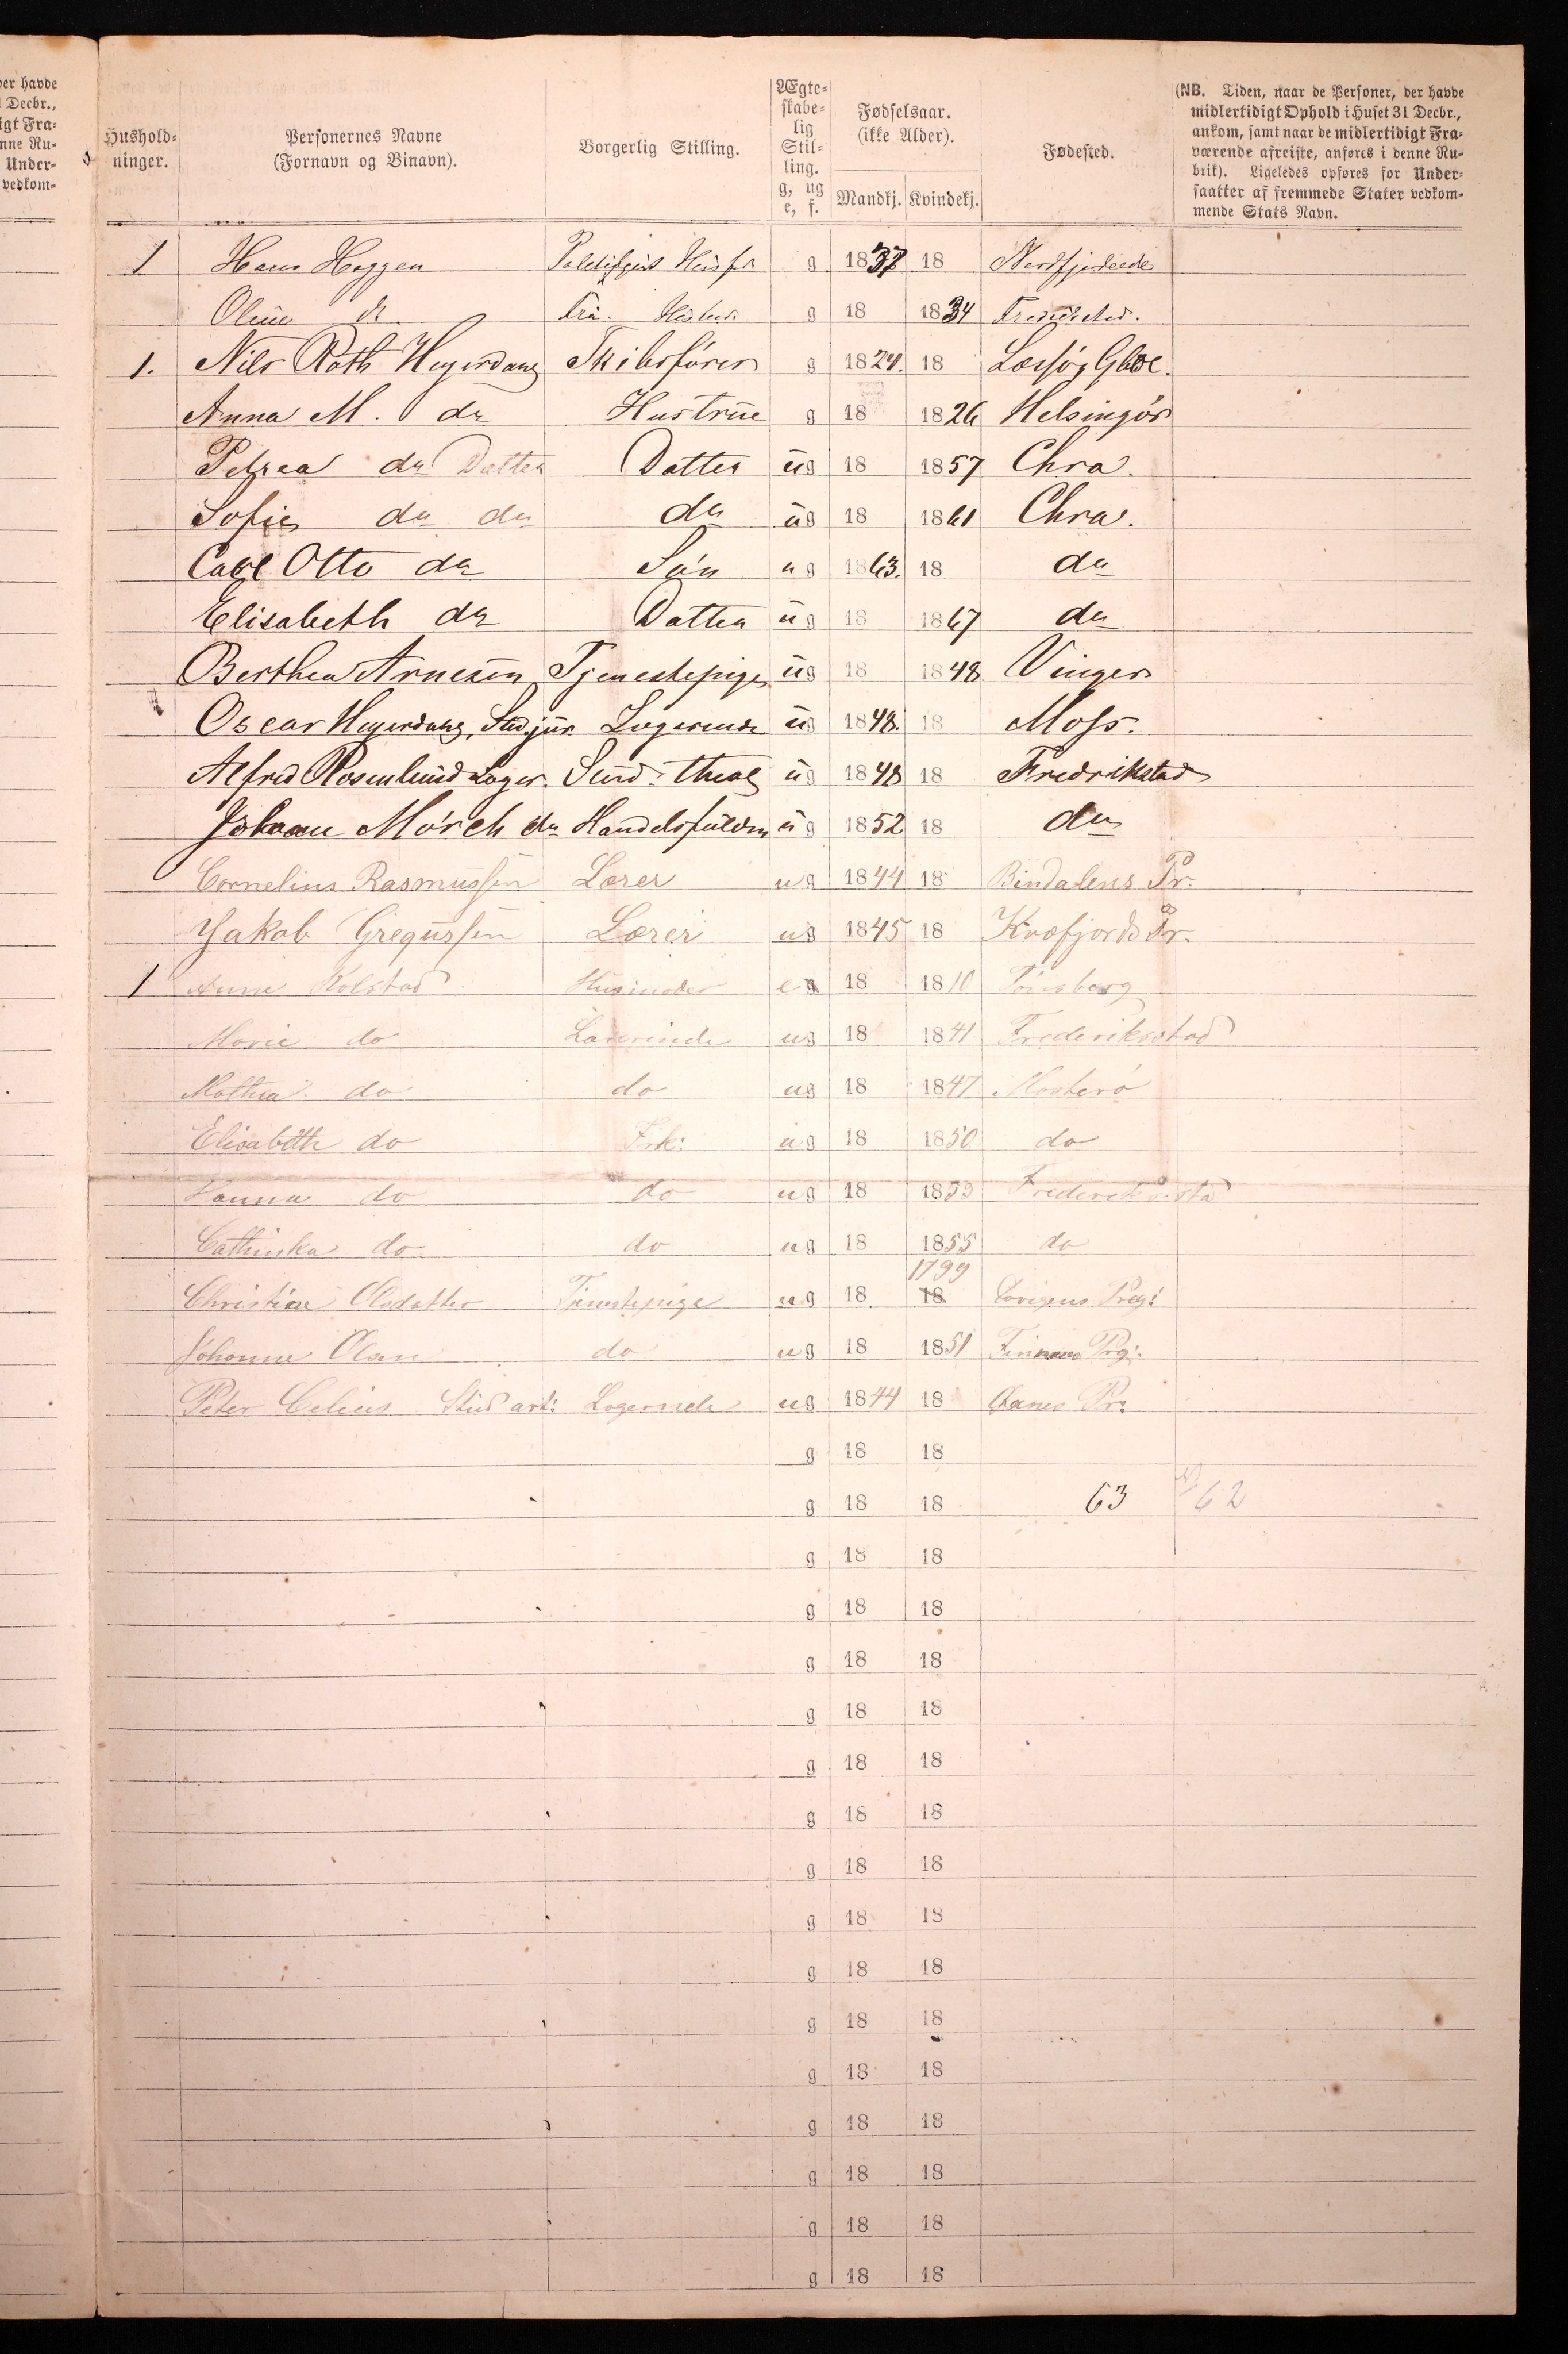 ver havde
1 Decbr.,
igt Fra-
nne Ru-
Under-
vedkom-
Hushold-
ninger.
Personernes Navne
(Fornavn og Binavn).
Borgerlig Stilling.
Ægte-
skabe-
lig
Stil-
ling.
g, ug
e, f.
Fødselsaar.
(ikke Alder).
Mandkj. Kvindekj.
Fødested.
(NB. Tiden, naar de Personer, der havde
midlertidigt Ophold i Huset 31 Decbr.,
ankom, samt naar de midlertidigt Fra-
værende afreiste, anføres i denne Ru-
brik). Ligeledes opføres for Under-
saatter af fremmede Stater vedkom-
mende Stats Navn.
1 Hans Haggen g 1837 18
Oline do g 18 1834
1. Nils Roth Heyerdahl Skibsfører g 1824. 18
Anna M. do Hustrue g 18 1826 Helsingör
Petrea do Datter Datter ug 18 1857 Chra.
Sofie do do do ug 18 1861 Chra.
Carl Otto do Sön ug 1863. 18 do
Elisabeth do Datter ug 18 1867 do
Berthea Arnesen Tjenestepige ug 18 1848 Vinger
Oscar Heyerdahl, Stud. jur. Logerende ug 1848. 18 Moss.
Alfred Rosenlund Loger. Stud. theol ug 1848 18 Fredrikstad
Johan Mörch do Handelsfuldm ug 1852 18 do
Cornelius Rasmussen Lærer ug 1844 18 Bindalens Pr.
Jakob Gregussen Lærer ug 1845 18 Kvæfjords Pr.
1 Anne Kolstad Husmoder e 18 1810 Tönsberg
Marie do Lærerinde ug 18 1841 Frederiksstad
Mathea do do ug 18 1847
Elisabeth do Frk: ug 18 1850 do
Hanna do do ug 18 1853 Frederiksstad
Cathinka do do ug 18 1855 do
1799
Christine Olsdatter Tjenestepige ug 18 18
Johanne Olsen do ug 18 1851
Peter Celius Stud art: Logerende ug 1844 18 Aanes Pr:
g 18 18
g 18 18 63 62
g 18 18
g 18 18
g 18 18
g 18 18
g 18 18
g 18 18
g 18 18
g 18 18
g 18 18
g 18 18
g 18 18
g 18 18
g 18 18
g 18 18
g 18 18